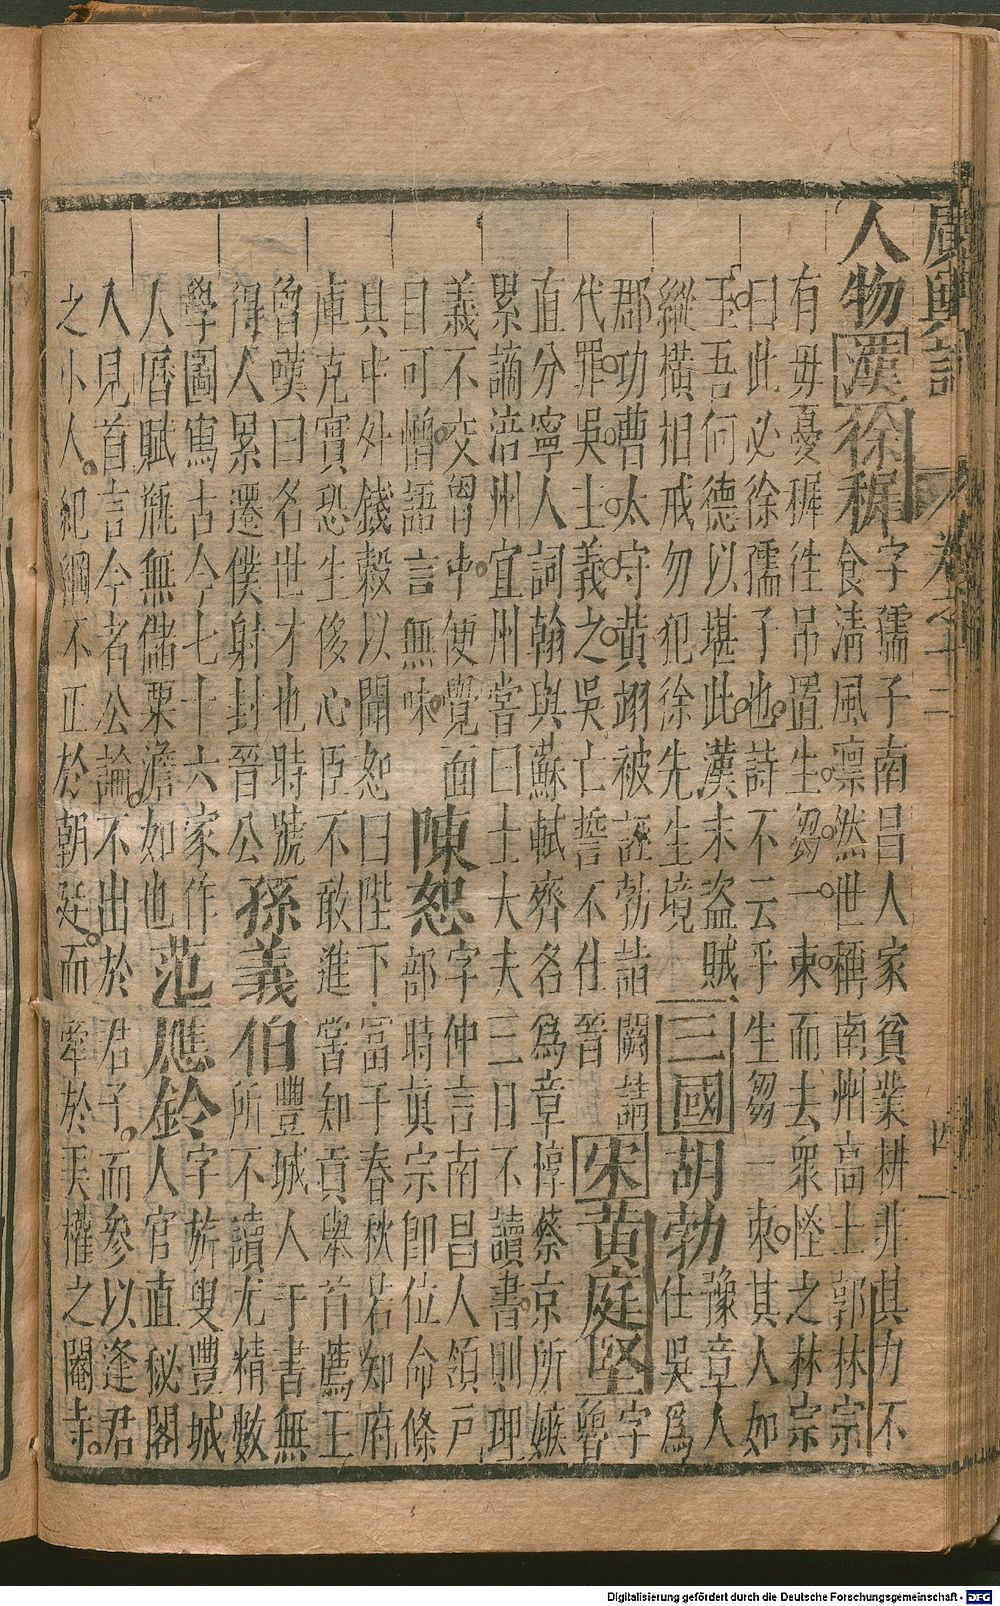 廣輿記
卷之十二
四
人物 漢 徐稺
字孺子南昌人家貧業耕非其力不
食清風凛然世稱南州高士郭林宗
有毋憂稺徃吊置生芻一束而去衆恠之林宗
曰此必徐孺子也詩不云乎生芻一束其人如
玉吾何德以堪此漢末盗賊
縱橫相戒勿犯徐先生境
三國 胡勃
豫章人
仕吳爲
郡功曹太守黄翊被誣勃詣闕請
代罪吳主義之吳亡誓不仕晉
宋 黄庭堅
字
魯
直分寧人詞翰與蘇軾齊名爲章惇蔡京所嫉
累謫涪州宜州嘗曰士大夫三日不讀書則理
義不交胷中便覺面
目可憎語言無味
陳恕
字仲言南昌人領戸
部時眞宗卽位命條
具中外錢穀以聞恕曰陛下富于春秋若知府
庫充實恐生侈心臣不敢進嘗知貢舉首薦王
曾嘆曰名世才也時號
得人累遷僕射封晉公
孫義伯
豐城人于書無
所不讀尤精數
學圖寫古今七十六家作
人厝賦瓶無儲粟澹如也
范應鈴
字旂叟豐城
人官直秘閣
入見首言今者公論不出於君子而參以逢君
之小人紀綱不正於朝廷而牽於弄權之閹寺
Digitalisierung gefördert durch die Deutsche Forschungsgemeinschaft - DFG